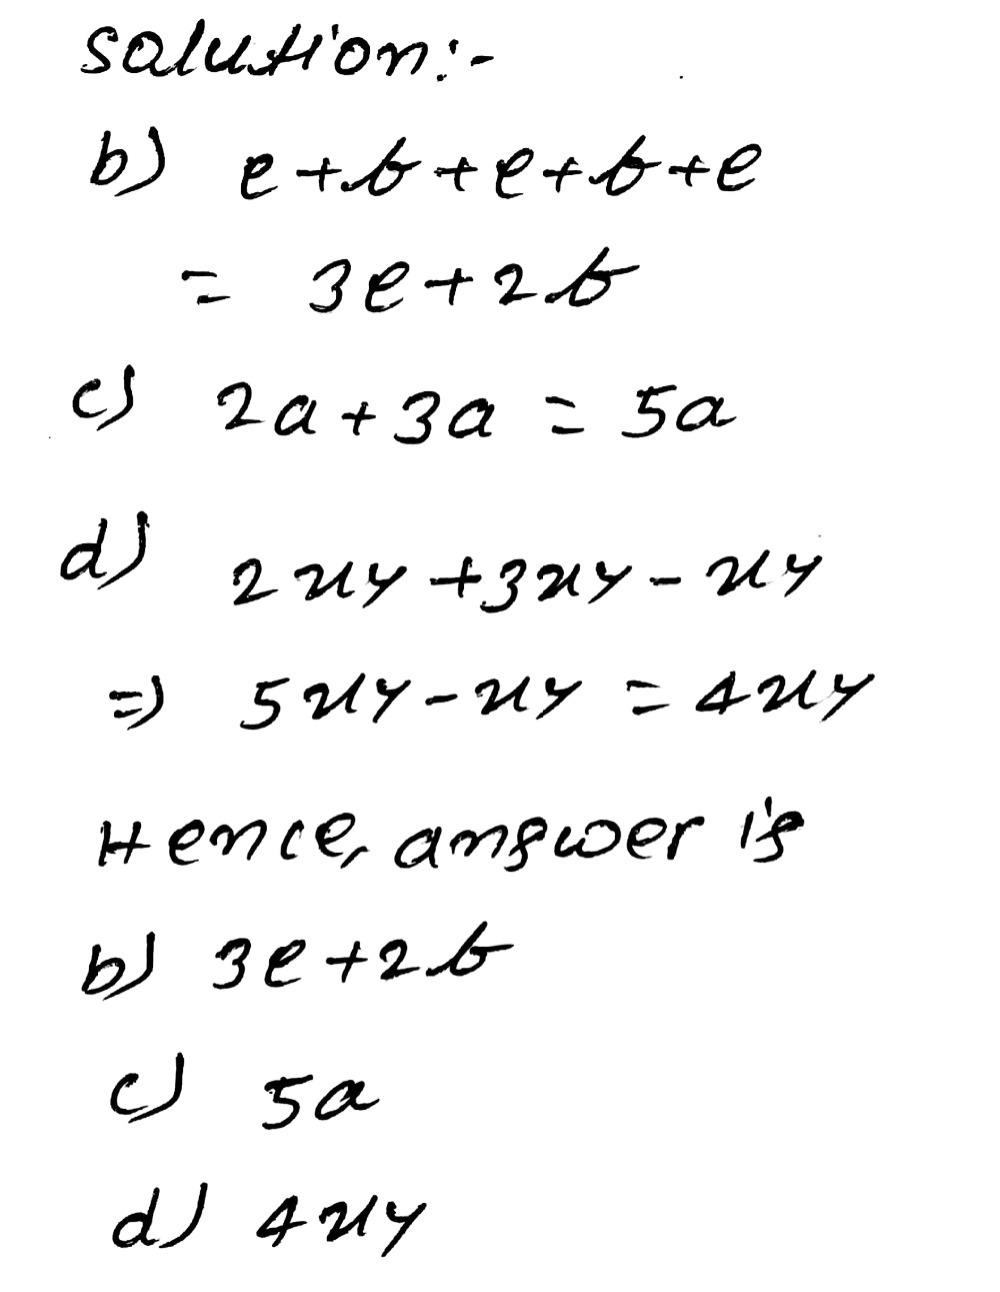 Solution:-
b) e+b+e+b+e
= 3e+2b
c) 2a+3a = 5a
d) 2xy+3xy-xy
⇒ 5xy-xy = 4xy
Hence, answer is
b) 3e+2b
c) 5a
d) 4xy